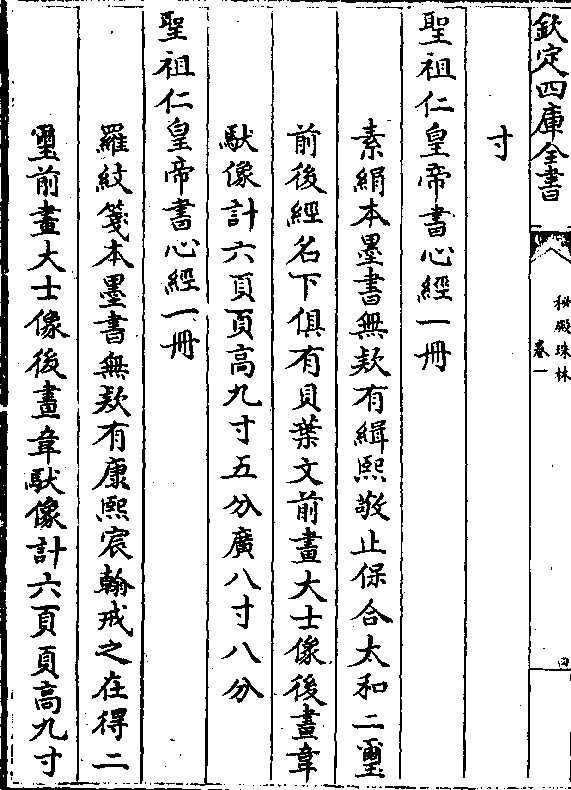 欽定四庫全書
秘殿珠林
卷一
四
寸
聖祖仁皇帝書心經一冊
素絹本墨書無款有緝熙敬止保合太和二璽
前後經名下俱有貝葉文前畫大士像後畫韋
馱像計六頁頁高九寸五分廣八寸八分
聖祖仁皇帝書心經一冊
羅紋箋本墨書無款有康熙宸翰戒之在得二
璽前畫大士像後畫韋馱像計六頁頁高九寸